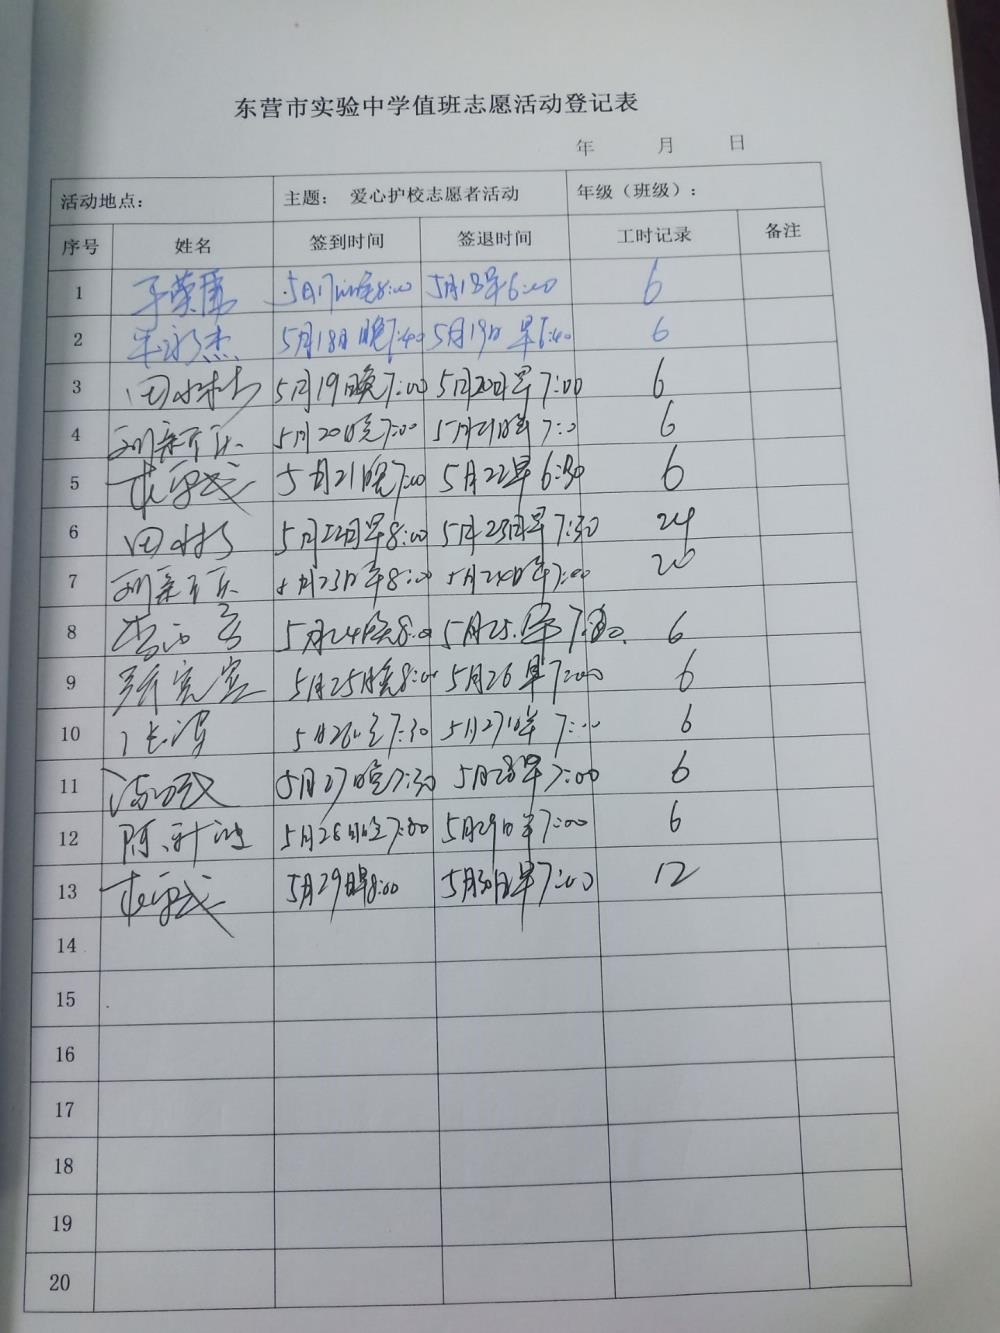 东营市实验中学值班志愿活动登记表
年 月 日
活动地点： 主题： 爱心护校志愿者活动 年级（班级）：
序号 姓名 签到时间 签退时间 工时记录 备注
1 于荣 5月17日晚8:00 5月18早6:00 6
2 牟永杰 5月18日晚7:40 5月19日早6:40 6
3 田 5月19晚7:00 5月20日早7:00 6
4 刘新 5月20晚7:00 5月21 7:0 6
5 5月21晚7:00 5月22早6:30 6
6 田 5月22日早8:00 5月23日早7:30 24
7 刘新 5月23日早8:00 5月24日早7:00 20
8 5月24晚8:0 5月25.早7: 6
9 5月25晚8:00 5月26早7:00 6
10 5月26晚7:30 5月27日早7:00 6
11 5月27晚7:30 5月28早7:00 6
12 陈 5月28日晚7:00 5月29日早7:00 6
13 5月29早8:00 5月30日早7:00 12
14
15
16
17
18
19
20